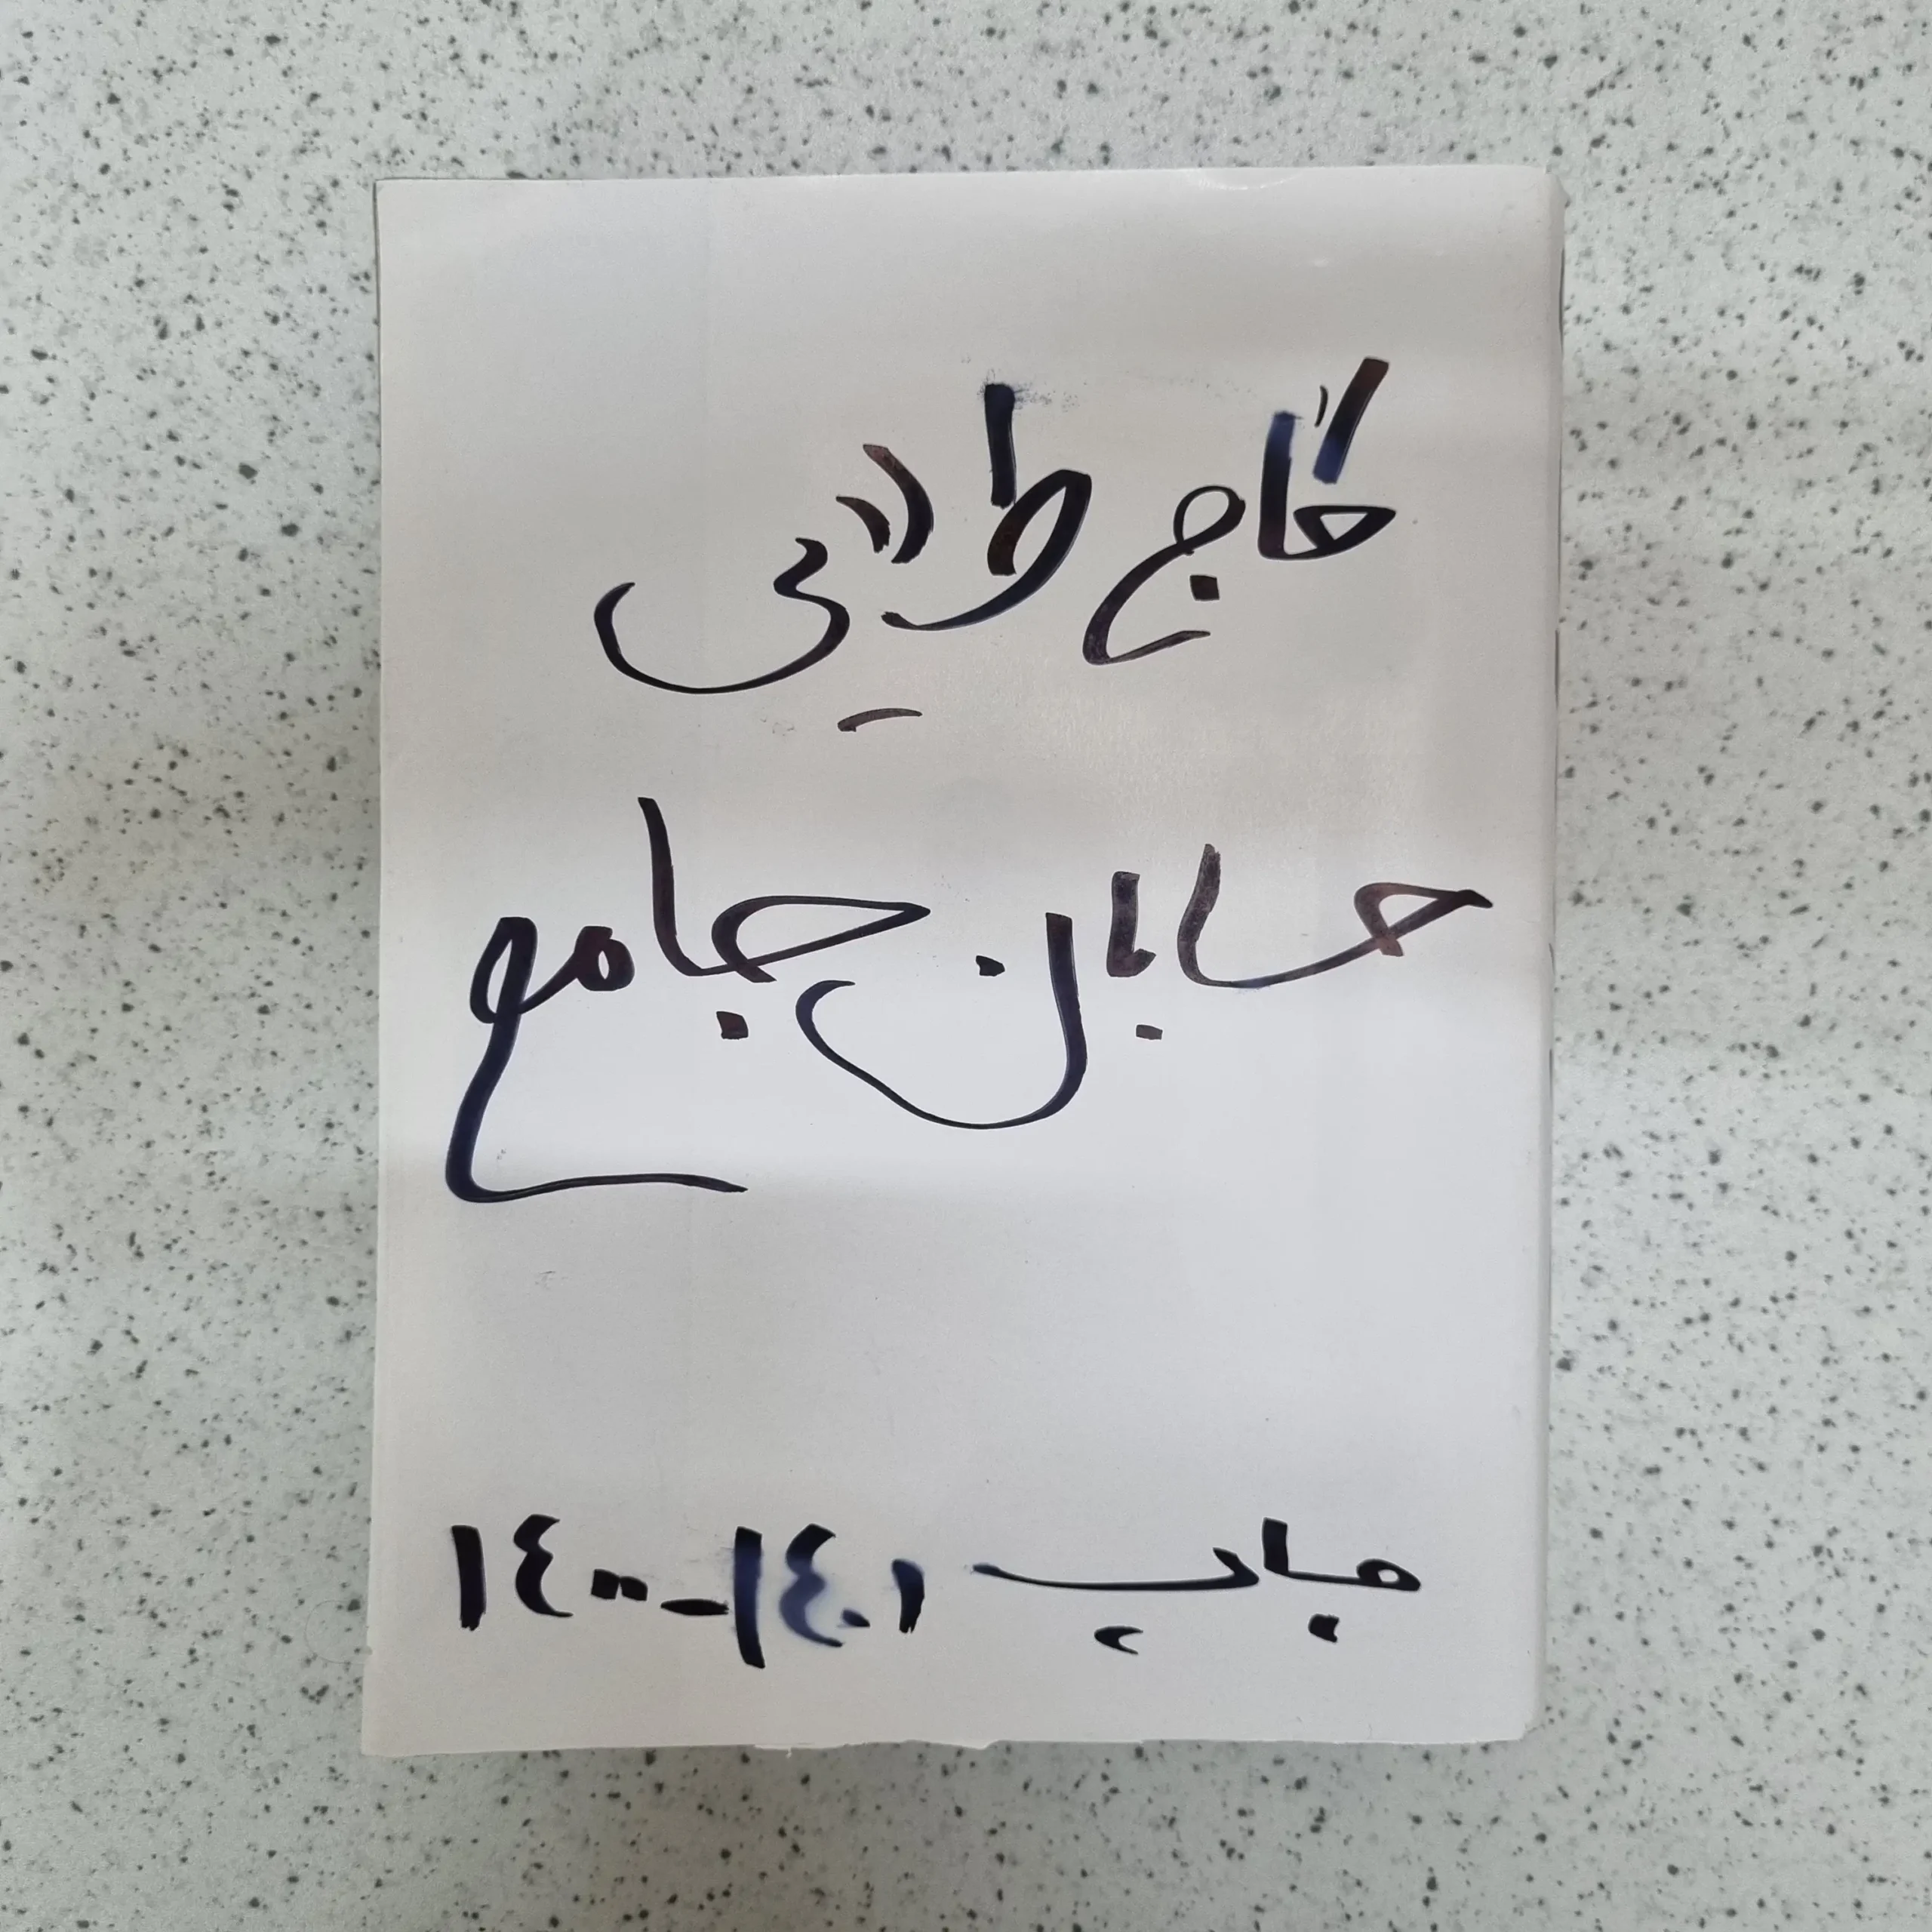 گاج طلایی
حسابان جامع
چاپ ۱۴۰۱-۱۴۰۰